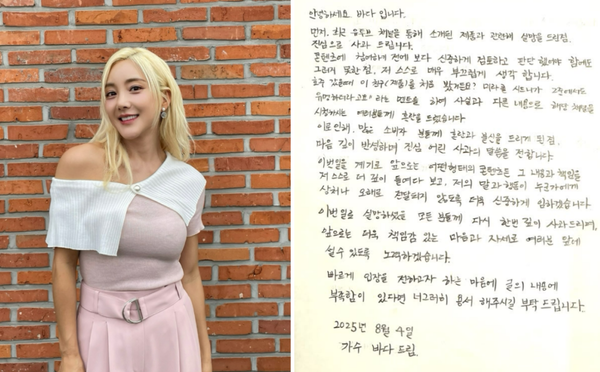 안녕하세요 바다 입니다.
먼저, 최근 유튜브 채널을 통해 소개된 제품과 관련해 실망을 드린점,
진심으로 사과 드립니다.
콘텐츠에 참여하기 전에 보다 신중하게 검토하고 판단 했어야 함에도
그러지 못한 점, 저 스스로 매우 부끄럽게 생각 합니다.
호주 있을때 이 친구(제품)를 처음 봤거든요? 미라클 시드니가 호주에도
유명하더라고요" 라는 멘트를 하여 사실과 다른 내용으로 해당 채널을
시청하시는 여러분들께 혼란을 드렸습니다
이로 인해, 많은 소비자 분들께 혼란과 불신을 드리게 된점,
마음 깊이 반성하며 진심 어린 사과의 말씀을 전합니다.
이번일을 계기로 앞으로는 어떤형태의 콘텐츠든 그 내용과 책임을
저 스스로 더 깊이 들여다 보고, 저의 말과 행동이 누군가에게
상처나 오해로 전달되지 않도록 더욱 신중하게 임하겠습니다.
이번일로 실망하셨을 모든 분들께 다시 한번 깊이 사과드리며,
앞으로는 더욱 책임감 있는 마음과 자세로 여러분 앞에
설수 있도록 노력하겠습니다.
바르게 입장을 전하고자 하는 마음에 글의 내용에
부족함이 있다면 너그러히 용서 해주시길 부탁 드립니다.
2025년 8월 4일
가수 바다 드림.